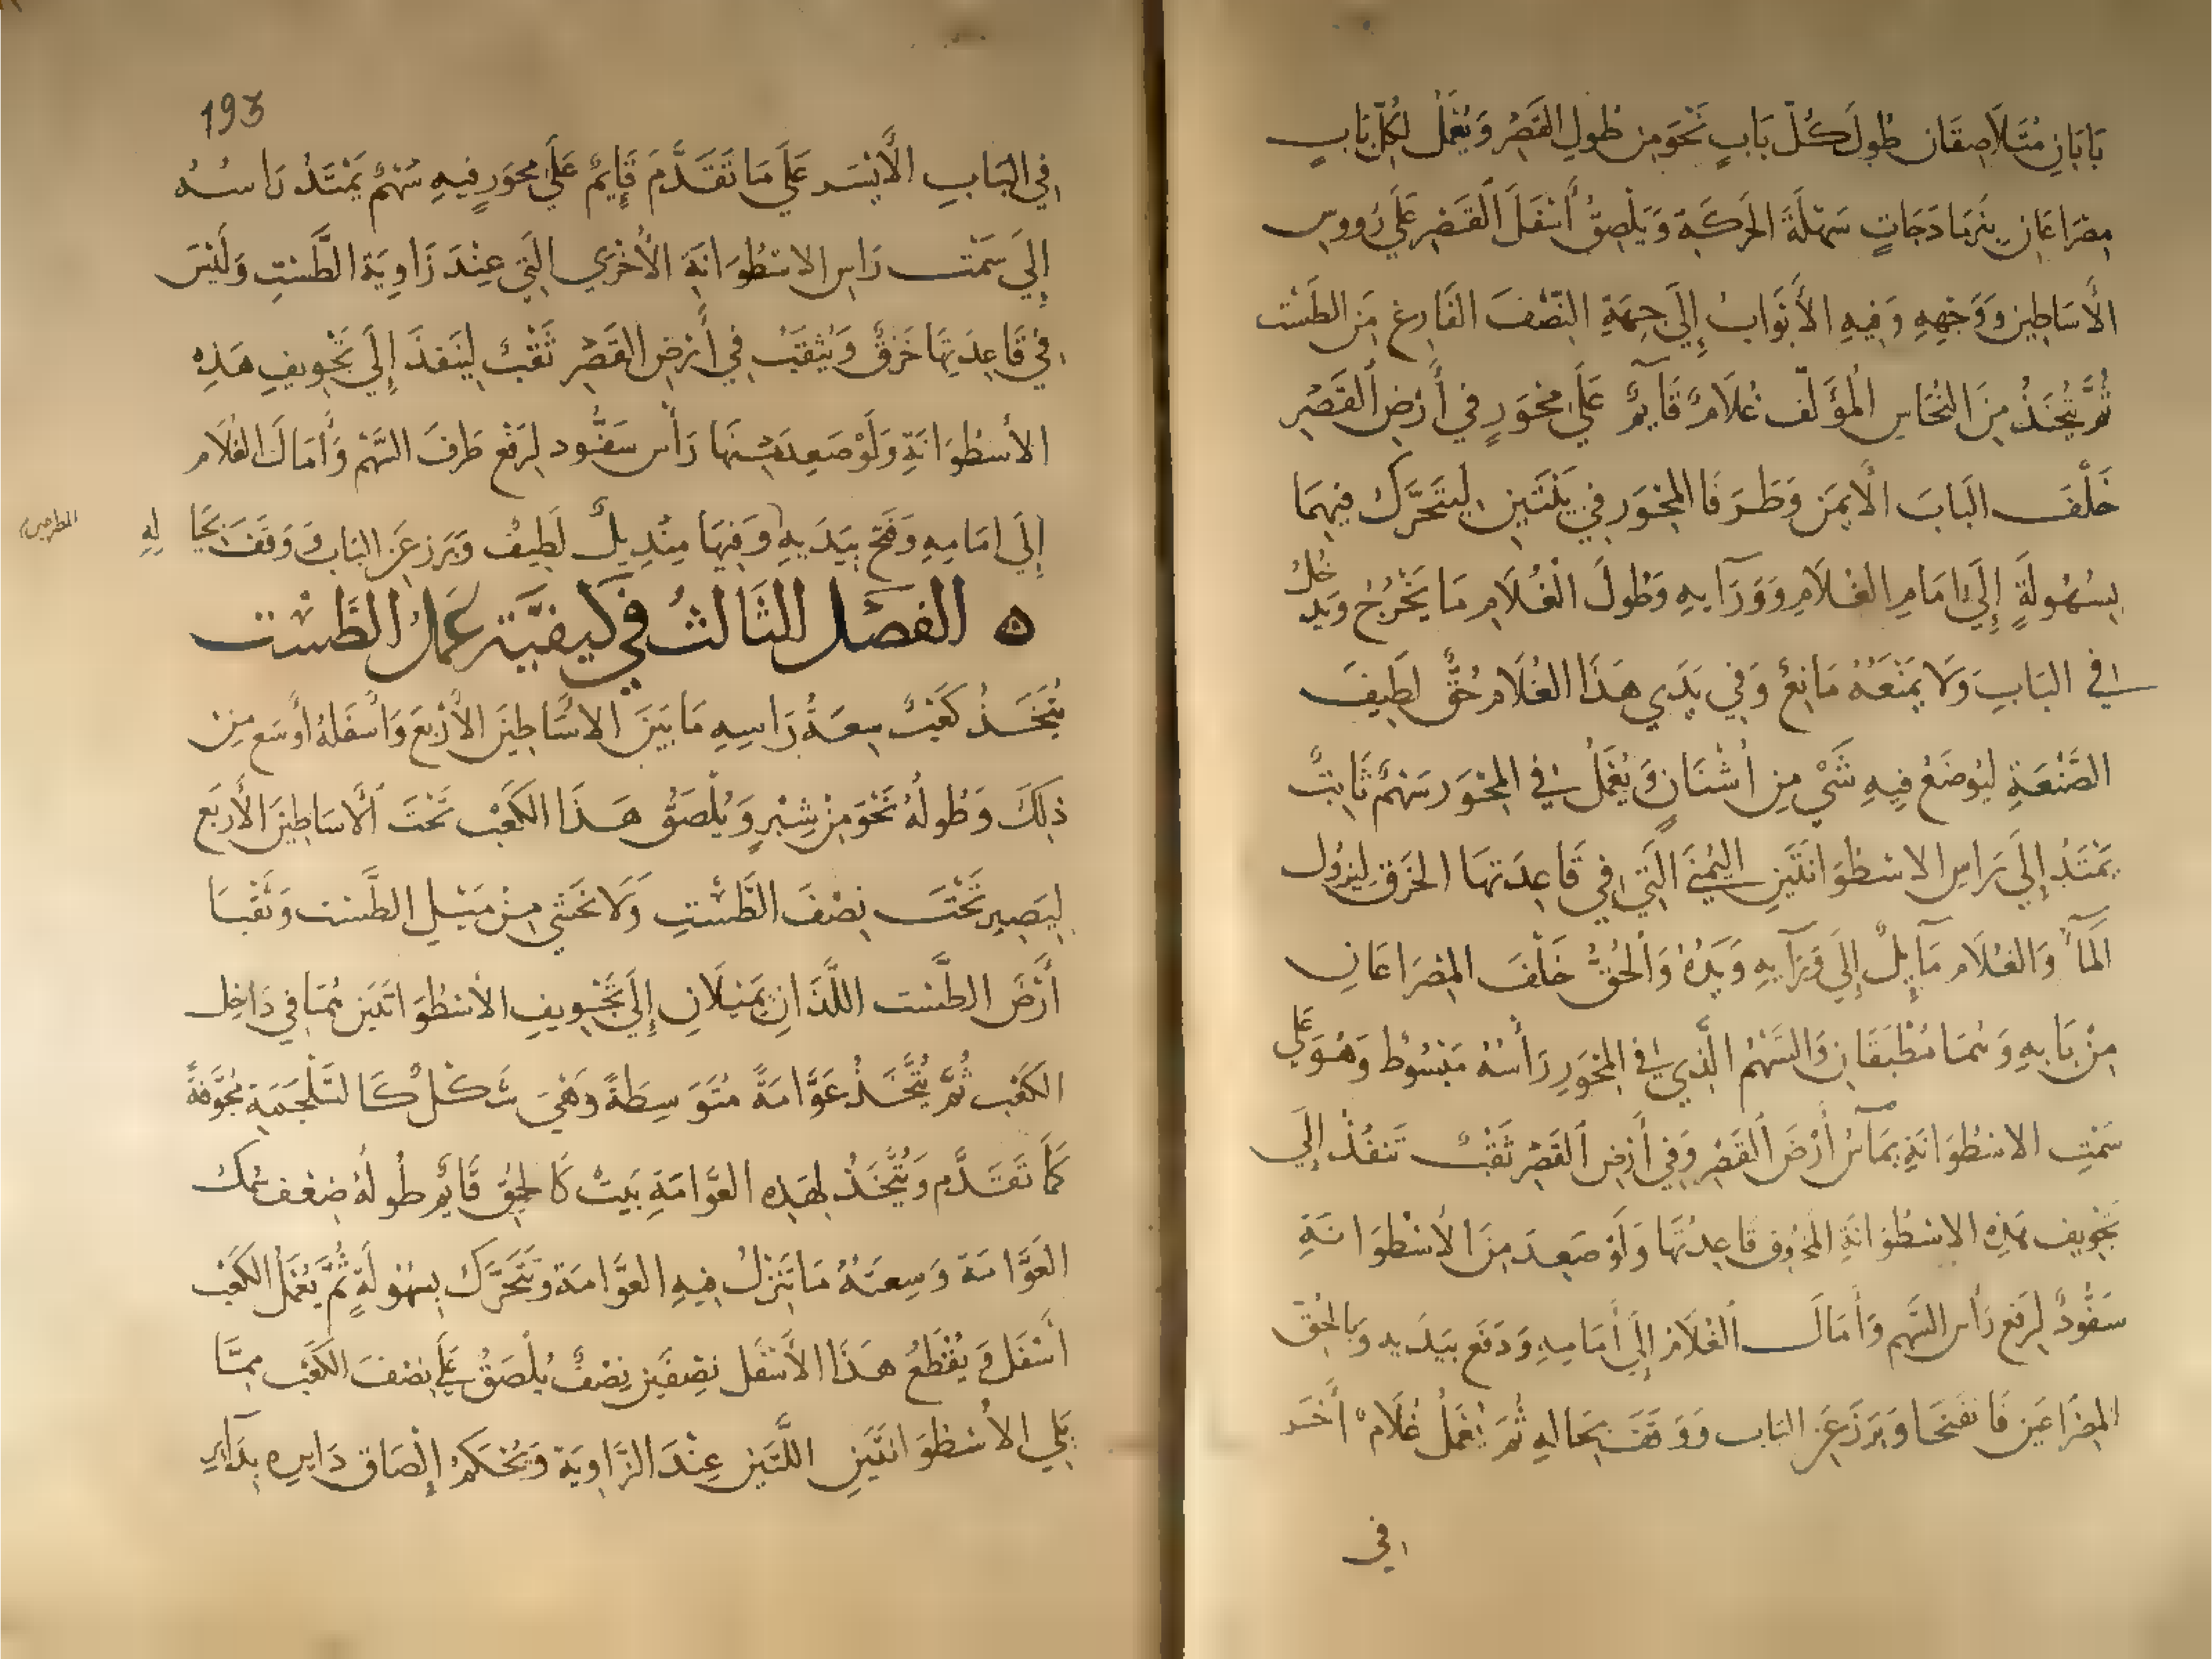 بَابَانِ مُتَلَاصِقَان طُولَ كُلّ بَابٍ نَحْوَمِن طُولِ القَصْرِ وَيُعْمَلُ لِكُلّ بَابٍ
مِصْرَاعَانِ بِنَرمَادَجَاتٍ سَهْلَةَ الحَرَكَةِ وَيُلْصِقُ أَسْفَلَ القَصْرِ عَلَى رُووسِ
الأَسَاطِين وَوَجْهِهِ وَفِيهِ الأَبْوَابُ إِلَى جِهَةِ النّصْفَ الفَارِغ مِنَ الطَسْت
ثُمَّ يُتّخَذُ مِنَ النُحَاسِ المُؤَلّف غُلَامٌ قَآيِمٌ عَلَى مِحْوَرٍ فِي أَرْضِ القَصْرِ
خَلْفَ البَابَ الأَيْمَن وَطَرَفَا المِحْوَرِ فِي بَيْتَين لِيَتَحَرَّكَ فِيهِمَا
بِسُهُولَةٍ إِلَى امَامِ الغُلَامِ وَوَرَآيِهِ وَطُولَ الغُلَامِ مَا يَخْرُجُ وَيَدخُلُ
فِي البَابِ وَلَا يَمْنَعَهُ مَانِعٌ وَفِي يَدَي هَذَا الغُلَام حُقٌّ لَطِيفَ
الصَّنْعَةِ لِيُوضَعُ فِيهِ شَيْ مِن أُشْنَانٍ وَيُعْمَلُ فِي المِحْوَر سَهْمٌ ثَابِتٌ
يَمْتَدُ إِلَى رَاسِ الاسْطُوَانَتَينِ اليُمْنَى الَّتِي فِي قَاعِدَتِهَا الخَرْقِ لِنزُول
المَآ وَالغُلَام مَآيِلٌ إِلَى وَرَآيِهِ وَيَدُهُ وَالحُقُّ خَلْفَ المِصْرَاعَانِ
مِنْ بَابِهِ وَهُمَا مُطْبَقَانِ وَالسَّهْمُ الَّذِي فِي المِحْوَرِ رَأْسُهُ مَبْسُوطٌ وَهُوَ عَلَى
سَمْتِ الاسْطُوَانَةِ بِمَآسُ أَرْضَ القَصْرِ وَفِي أَرْضِ القَصْرِ ثَقْبٌ تَنفُذْ إِلَى
تَجْوِيف هَذِهِ الاسْطُوَانَةِ المَخْرُوقِ قَاعِدَتُهَا وَلَوْ صَعِدَ مِنَ الأُسْطُوَانَةِ
سَفُّودٌ لِرَفَع رَأْسَ السَهْم وَأَمَالَ الغُلَامَ إِلَى أَمَامِهِ وَدَفَع بِيَدَيهِ وَبِالحُقّ
المِصْرَاعَين فَانفَتَحَا وَبَرَزَ عَنِ البَاب وَوَقَفَ بِحَالِهِ ثُمَّ يُعْمَلُ غُلَامٌ أَخَر
في
193
فِي البَابِ الأَيْسَر عَلَى مَا تَقَدَّمَ قَايِمٌ عَلَى مِحْوَرٍ فِيهِ سَهْمٌ يَمْتَدُ رَاسُهُ
إِلَى سَمْتِ رَاسِ الاسْطُوَانَةِ الأُخْرَي الَتِي عِنْدَ زَاوِيَةَ الطَّسْتِ وَلَيْسَ
فِي قَاعِدَتِهَا خَرْقٌ وَيُثقَبُ فِي أَرْضِ القَصْرِ ثَقْبٌ لِيَنفذَ إِلَى تَجْوِيفِ هَذِهِ
الأُسْطُوَانَةِ وَلَوْ صَعِدَ مِنهَا رَأْس سَفُّود لرَفَع طَرفَ السَّهْم وَأَمَالَ الغُلَام
إِلَى امَامِهِ وَفَتَحَ بِيَدَيهِ وَفِيهَا مِنْدِيلٌ لَطِيفٌ وَبَرَز عَنِ البَابِ وَوَقَفَ بِحَا لِهِ
الفَصْل الثَالثُ في كَيفيَّة عَمَل الطَّسْت
يُتّخَذُ كَعْبٌ سِعَةُ رَاسِهِ مَا بَيْنَ الاسَّاطِينَ الأَرْبَع وَاسْفَلهُ أَوسَع مِنْ
ذَلِكَ وَطُولُهُ نَحْوَمِنْ شِبْرٍ وَيُلْصَقُ هَذَا الكَعْبُ تَحْتَ الأَسَاطِينَ الأَرْبَع
لِيَصِير تَحْتَ نِصْفَ الطَّسْتِ وَلَا نَخْشَى مِنْ مَيْلِ الطَّسْت وَثَقْبَا
أَرْضَ الطَّسْت اللَّذَانِ يَميلَانِ إِلَى تَجْوِيفِ الأُسْطُوَانَتَين هُمَا فِي دَاخِل
الكَعْبِ ثُمَّ يُتَّخَذُ عَوَّامَةً مُتَوَسِطَةً وَهْيَ شَكْلٌ كَالسَلْجَمَةِ مُجَوَّفَةً
كَمَا تَقَدَّم وَيُتَّخَذُ لِهَذِهِ العَوَّامَةِ بَيتٌ كَالحُقّ قَايِم طُولهُ ضِعْف سُمْك
العَوَّامَة وَسِعَتُهُ مَا يَنْزلُ فِيهِ العَوَّامَةِ وَتَتَحَرَّكَ بِسُهُولَةٍ ثُمَّ يُعْمَلُ الكَعْبِ
أَسْفَل وَيُقْطَعُ هَذَا الأَسْفَل نِصْفَين نِصْفٌ يُلْصَقُ عَلَى نِصْفَ الكَعْبِ مِمَّا
يَلِي الأُسْطُوَانَتَينِ اللَّتَين عِنْدَ الزَّاوِيَة وَيُحْكَمُ إِلْصَاق دَايِرِه بِدَآيِرِ